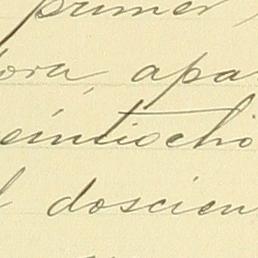 primer
ora, apa
eintiocho
l doscien